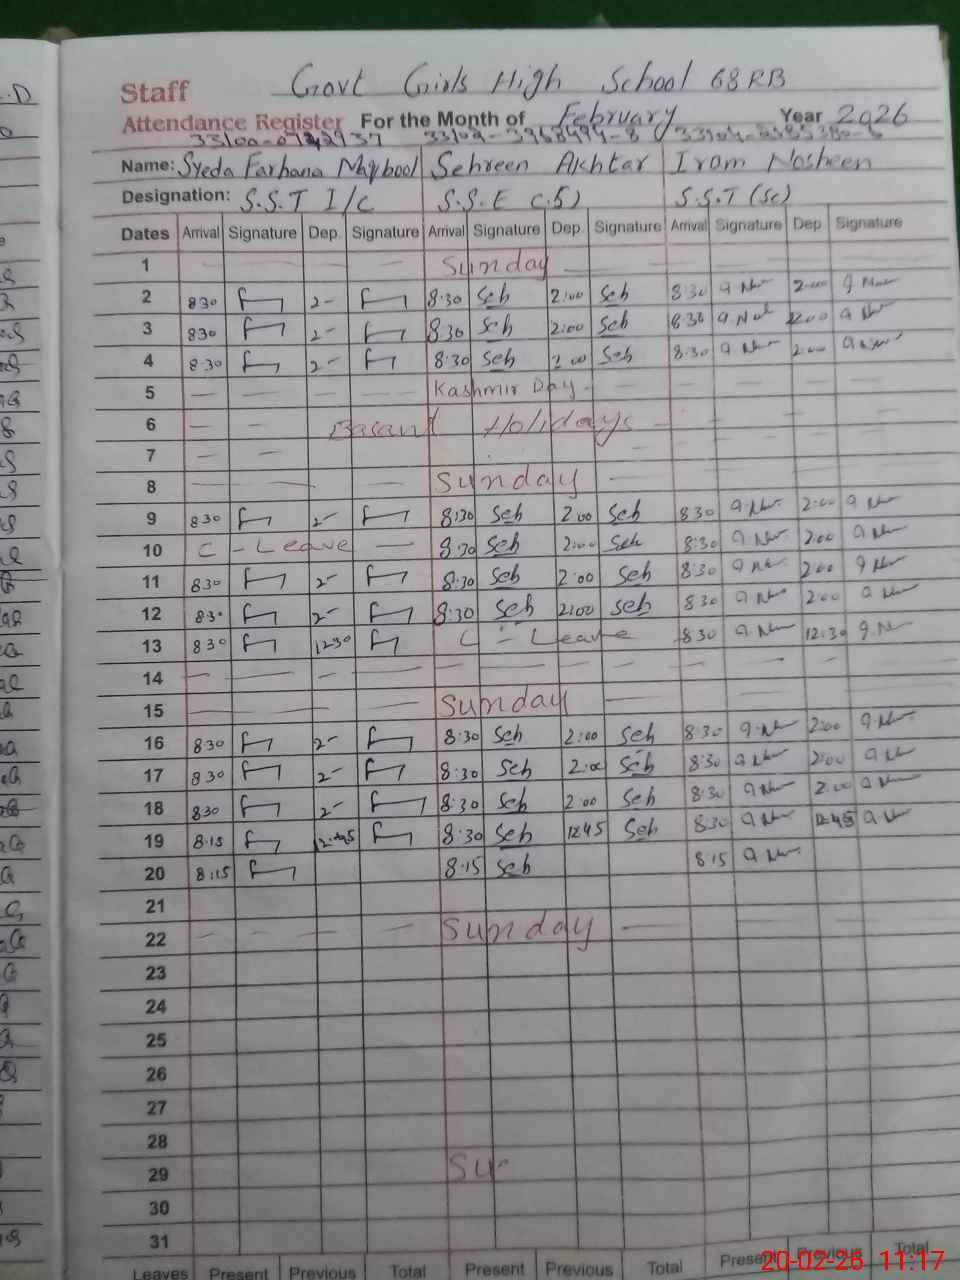 Govt Girls High School 68 RB
Staff
Attendance Register For the Month of February Year 2026
Name: Syeda Farhana Maqbool Sehreen Akhtar Iram Nosheen
Designation: S.S.T I/C S.S.E C.S) S.S.T (Sc)
Dates Arrival Signature Dep. Signature Arrival Signature Dep. Signature Arrival Signature Dep. Signature
1 Sunday
2 830 2- 8:30 Seh 2:00 Seh 8:30 2:00
3 830 2- 8:30 Seh 2:00 Seh 8:30 2:00
4 8.30 2- 8:30 Seh 2 00 Seh 8:30 2:00
5 Kashmir Day
6 Basant Holidays
7
8 Sunday
9 830 2- 8:30 Seh 2:00 Seh 8:30 2:00
10 C - Leave 8:30 Seh 2:00 Seh 8:30 2:00
11 830 2- 8:30 Seh 2:00 Seh 8:30 2:00
12 830 2- 8:30 Seh 2:00 Seh 8:30 2:00
13 830 1230 C - Leave 8:30 12:30
14
15 Sunday
16 830 2- 8:30 Seh 2:00 Seh 8:30 2:00
17 830 2- 8:30 Seh 2:00 Seh 8:30 2:00
18 830 2- 8:30 Seh 2:00 Seh 8:30 2:00
19 8:15 12:45 8:30 Seh 1245 Seh 8:30 12:45
20 8:15 8:15 Seh 8:15
21
22 Sunday
23
24
25
26
27
28
29 Su
30
31
Leaves Present Previous Total Present Previous Total Present Previous Total
20-02-26 11:17